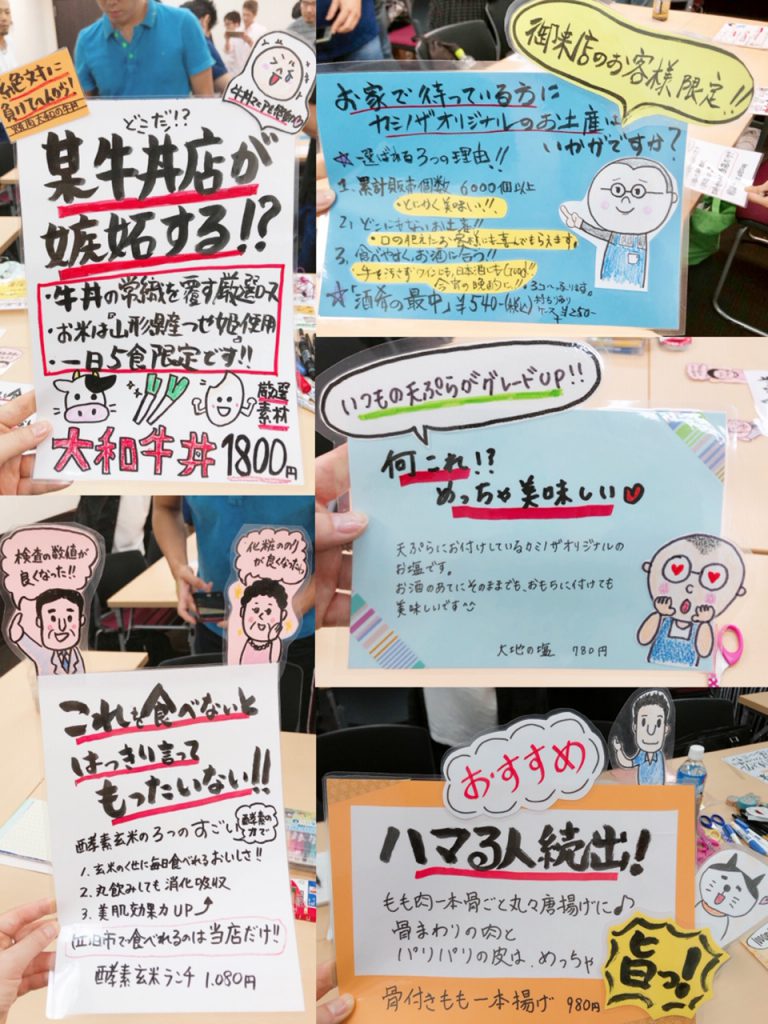 絶対に
負けてへんがな!
関西大和の牛丼
牛丼マニアも絶賛!?
どこだ!?
某牛丼店が
嫉妬する!?
・牛丼の常識を覆す厳選ロース
・お米は「山形県産つや姫」使用
・一日5食限定です!!
厳選
素材
大和牛丼 1800円
御来店のお客様限定!!
お家で待っている方に
カミノザオリジナルのお土産は
いかがですか?
☆選ばれる3つの理由!!
1. 累計販売個数 6000個以上
・とにかく美味い!!
2. どこにもないお土産!!
・口の肥えたお客様にも喜んでもらえます。
3. 食べやすく、お酒に合う!!
手を汚さずワインにも、日本酒にもGood!!
今宵の晩酌に!!
☆「酒肴の最中」¥540-(税込)
3コ入ります。
持ち帰り
ケース ¥250-
いつもの天ぷらがグレードUP!!
何これ!?
めっちゃ美味しい♥
天ぷらにお付けしているカミノザオリジナルの
お塩です。
お酒のあてにそのままでも、おもちに付けても
美味しいです^^
大地の塩 780円
検査の数値が
良くなった!!
化粧ののり
が良くなった♪
これを食べないと
はっきり言って
もったいない!!
酵素玄米の3つのすごい
酵素の
力で
1. 玄米のくせに毎日食べれるおいしさ!!
2. 丸飲みしても消化吸収
3. 美肌効果力UP
市で食べれるのは当店だけ!!
酵素玄米ランチ 1.080円
おすすめ
ハマる人続出!
もも肉一本骨ごと丸々唐揚げに♪
骨まわりの肉と
パリパリの皮は、めっちゃ
旨っ!
骨付きもも一本揚げ 980円